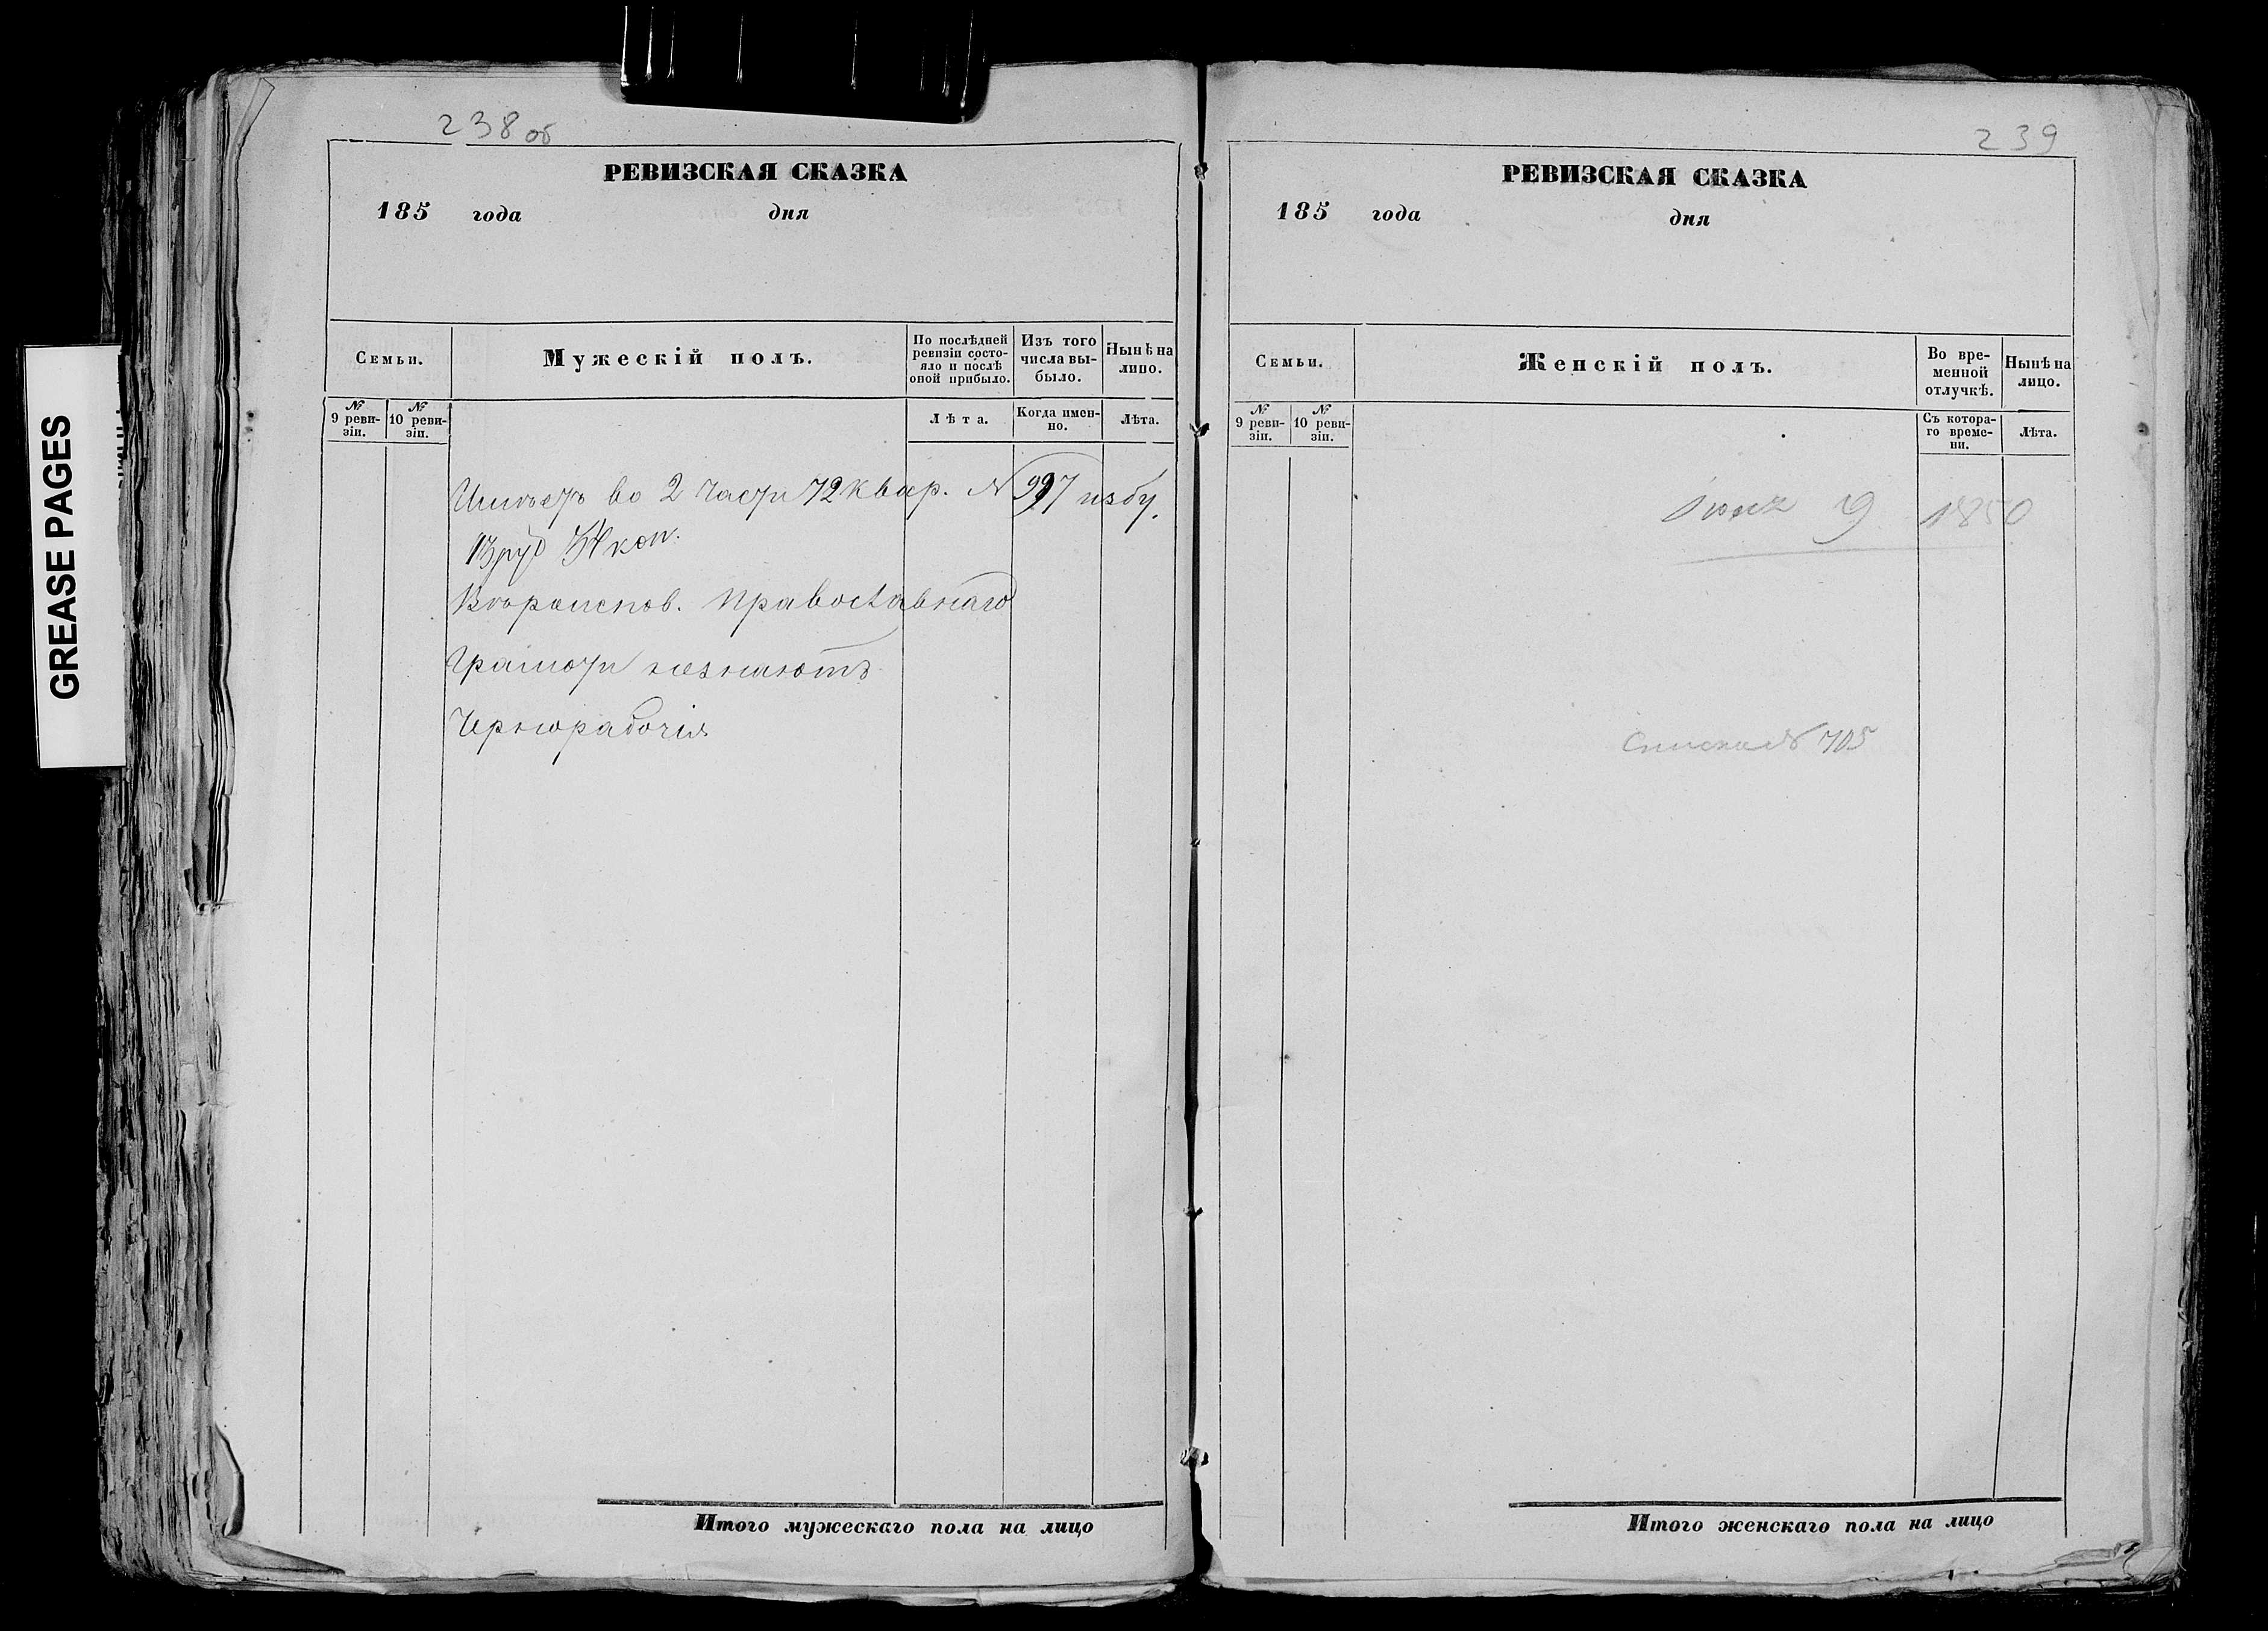 GREASE PAGES
238об
РЕВИЗСКАЯ СКАЗКА
185 года дня
Семьи.
Мужескій полъ.
По послѣдней ревизіи состояло и послѣ оной прибыло.
Изъ того числа выбыло.
Нынѣ на лицо.
№ 9 ревизіи.
№ 10 ревизіи.
Лѣта.
Когда именно.
Лѣта.
Имѣетъ во 2 части 72 квар. N 997 избу.
руб коп.
Вѣроиспов. Православнаго
Грамоти незнаютъ
Чернорабочія
Итого мужескаго пола на лицо
239
РЕВИЗСКАЯ СКАЗКА
185 года дня
Семьи.
Женскій полъ.
Во временной отлучкѣ.
Нынѣ на лицо.
№ 9 ревизіи.
№ 10 ревизіи.
Съ котораго времени.
Лѣта.
9 1850
Списка № 705
Итого женскаго пола на лицо